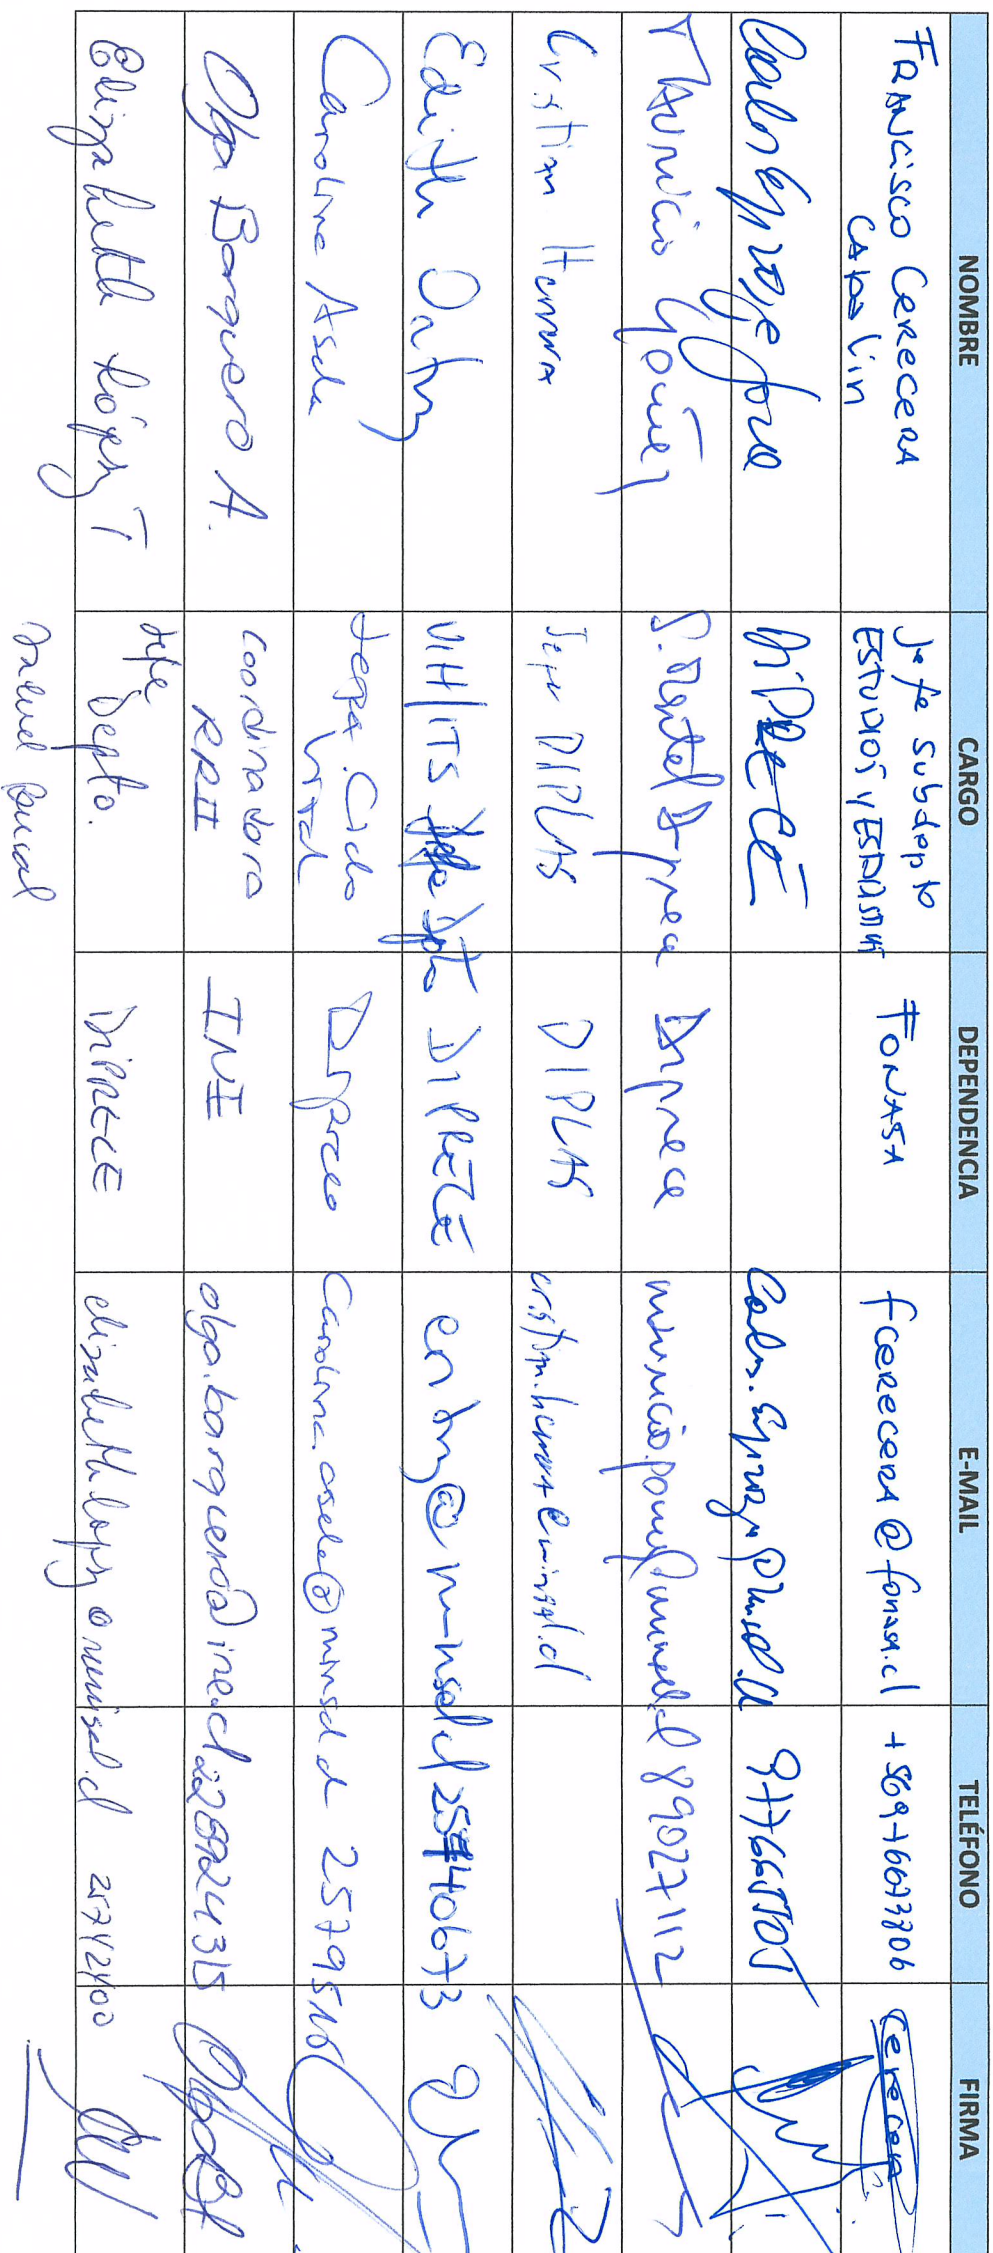 NOMBRE CARGO DEPENDENCIA E-MAIL TELÉFONO FIRMA
FRANCISCO CERECERA CABALIN Jefe Subdepto ESTUDIOS Y FONASA fcerecera@fonasa.cl Cerecera
DIPRECE
MAURICIO S. Mental Diprece Diprece 89027112
Cristian Herrera Jefe DIPLAS DIPLAS cristian.herrera@minsal.cl
Edith Ortiz VIH/ITS Jefa Dpto DIPRECE eortiz@minsal.cl 25740673
Carolina Asela Jefa Ciclo Vital Diprece carolina.asela@minsal.cl
Olga Barquero A. Coordinadora RRII INE olga.barquero@ine.cl 228924315
Elizabeth López T Jefe Depto. Salud Bucal DIPRECE elizabeth.lopez@minsal.cl 25742400